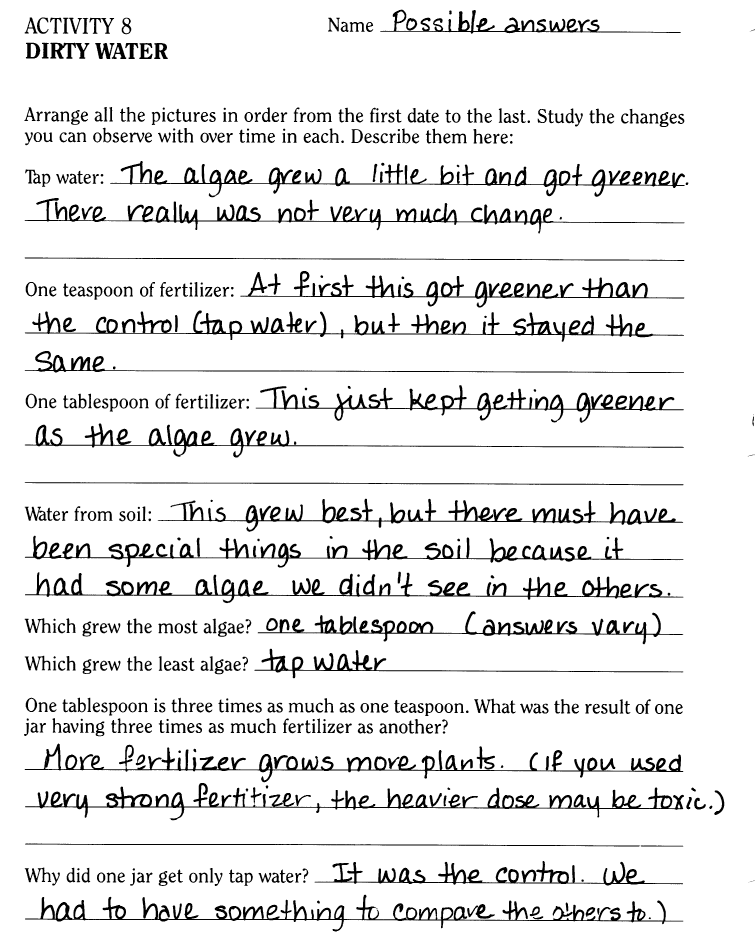 ACTIVITY 8
Name Possible answers
DIRTY WATER
Arrange all the pictures in order from the first date to the last. Study the changes
you can observe with over time in each. Describe them here:
Tap water: The algae grew a little bit and got greener.
There really was not very much change.
One teaspoon of fertilizer: At first this got greener than
the control (tap water), but then it stayed the
same.
One tablespoon of fertilizer: This just kept getting greener
as the algae grew.
Water from soil: This grew best, but there must have
been special things in the soil because it
had some algae we didn't see in the others.
Which grew the most algae? one tablespoon (answers vary)
Which grew the least algae? tap water
One tablespoon is three times as much as one teaspoon. What was the result of one
jar having three times as much fertilizer as another?
More fertilizer grows more plants. (If you used
very strong fertitizer, the heavier dose may be toxic.)
Why did one jar get only tap water? It was the control. We
had to have something to compare the others to.)